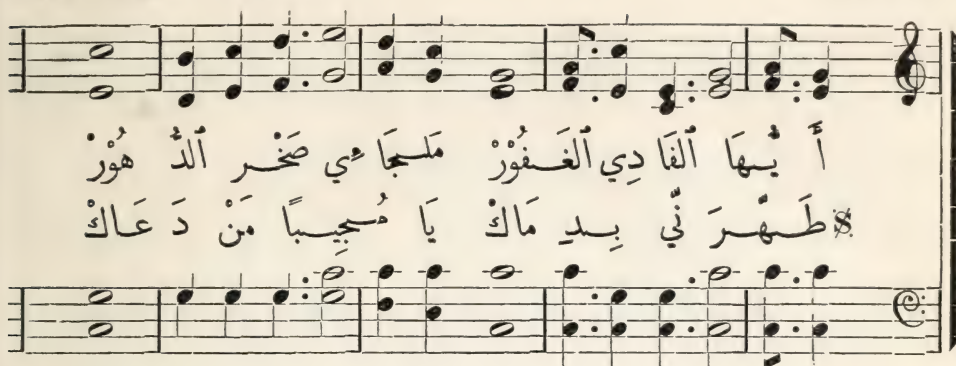 أَ يُّهَا ٱلفَا دِي ٱلغَفُوْرْ مَلجَا ءِي صَخْر ٱلدُّ هُوْرْ
طَهَّرَ نِّي بِدِ مَاكْ يَا مُجِيبًا مَنْ دَ عَاكْ